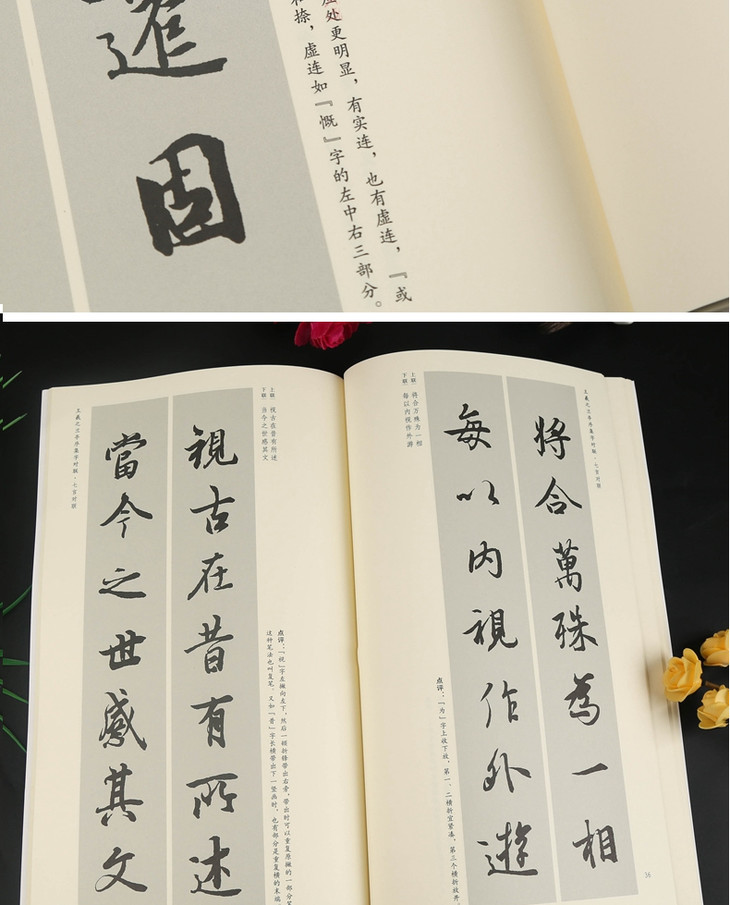 處更明显，有实连，也有虚连，『或
捺，虚连如『慨』字的左中右三部分。
固
王羲之兰亭序集字对联·七言对联
上联：将合万殊为一相
下联：每以内视作外游
將合萬殊為一相
每以內視作外遊
点评：「为」字上收下放，第一、二横折宜紧凑，第三个横折放开，
34
上联：视古在昔有所述
下联：当今之世感其文
視古在昔有所述
當今之世感其文
点评：「视」字左撇向左下，然后一横折锋带出右旁，带出时可以重复原撇的一部分
这种笔法也叫复笔。又如「昔」字长横带出下一竖画时，也有部分是重复横的末端
王羲之兰亭序集字对联·七言对联